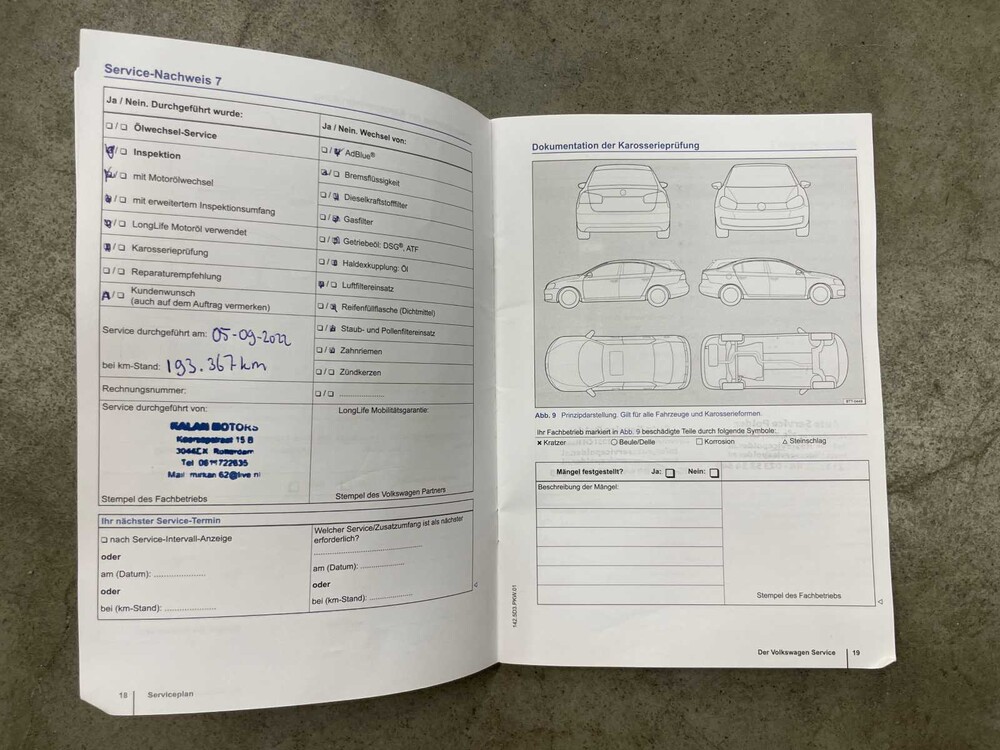 Service-Nachweis 7
Ja / Nein. Durchgeführt wurde:
❑/❑ Ölwechsel-Service
❑/❑ Inspektion
❑/❑ mit Motorölwechsel
❑/❑ mit erweitertem Inspektionsumfang
❑/❑ LongLife Motoröl verwendet
❑/❑ Karosserieprüfung
❑/❑ Reparaturempfehlung
❑/❑ Kundenwunsch
(auch auf dem Auftrag vermerken)
Service durchgeführt am: 05-09-2022
bei km-Stand: 193.367km
Rechnungsnummer:
Service durchgeführt von:
KALAN MOTORS
15 B
Rotterdam
Tel
Mail
Stempel des Fachbetriebs
Ja / Nein. Wechsel von:
❑/❑ AdBlue®
❑/❑ Bremsflüssigkeit
❑/❑ Dieselkraftstofffilter
❑/❑ Gasfilter
❑/❑ Getriebeöl: DSG®, ATF
❑/❑ Haldexkupplung: Öl
❑/❑ Luftfiltereinsatz
❑/❑ Reifenfüllflasche (Dichtmittel)
❑/❑ Staub- und Pollenfiltereinsatz
❑/❑ Zahnriemen
❑/❑ Zündkerzen
❑/❑ ....................
LongLife Mobilitätsgarantie:
Stempel des Volkswagen Partners
Ihr nächster Service-Termin
❑ nach Service-Intervall-Anzeige
oder
am (Datum): ....................
oder
bei (km-Stand): ....................
Welcher Service/Zusatzumfang ist als nächster
erforderlich?
........................................
am (Datum): ....................
oder
bei (km-Stand): ....................
18 Serviceplan
Dokumentation der Karosserieprüfung
Abb. 9 Prinzipdarstellung. Gilt für alle Fahrzeuge und Karosserieformen.
Ihr Fachbetrieb markiert in Abb. 9 beschädigte Teile durch folgende Symbole:
× Kratzer ○ Beule/Delle □ Korrosion △ Steinschlag
Mängel festgestellt? Ja: ❑ Nein: ❑
Beschreibung der Mängel:
Stempel des Fachbetriebs
142.5D3.PKW.01
Der Volkswagen Service 19